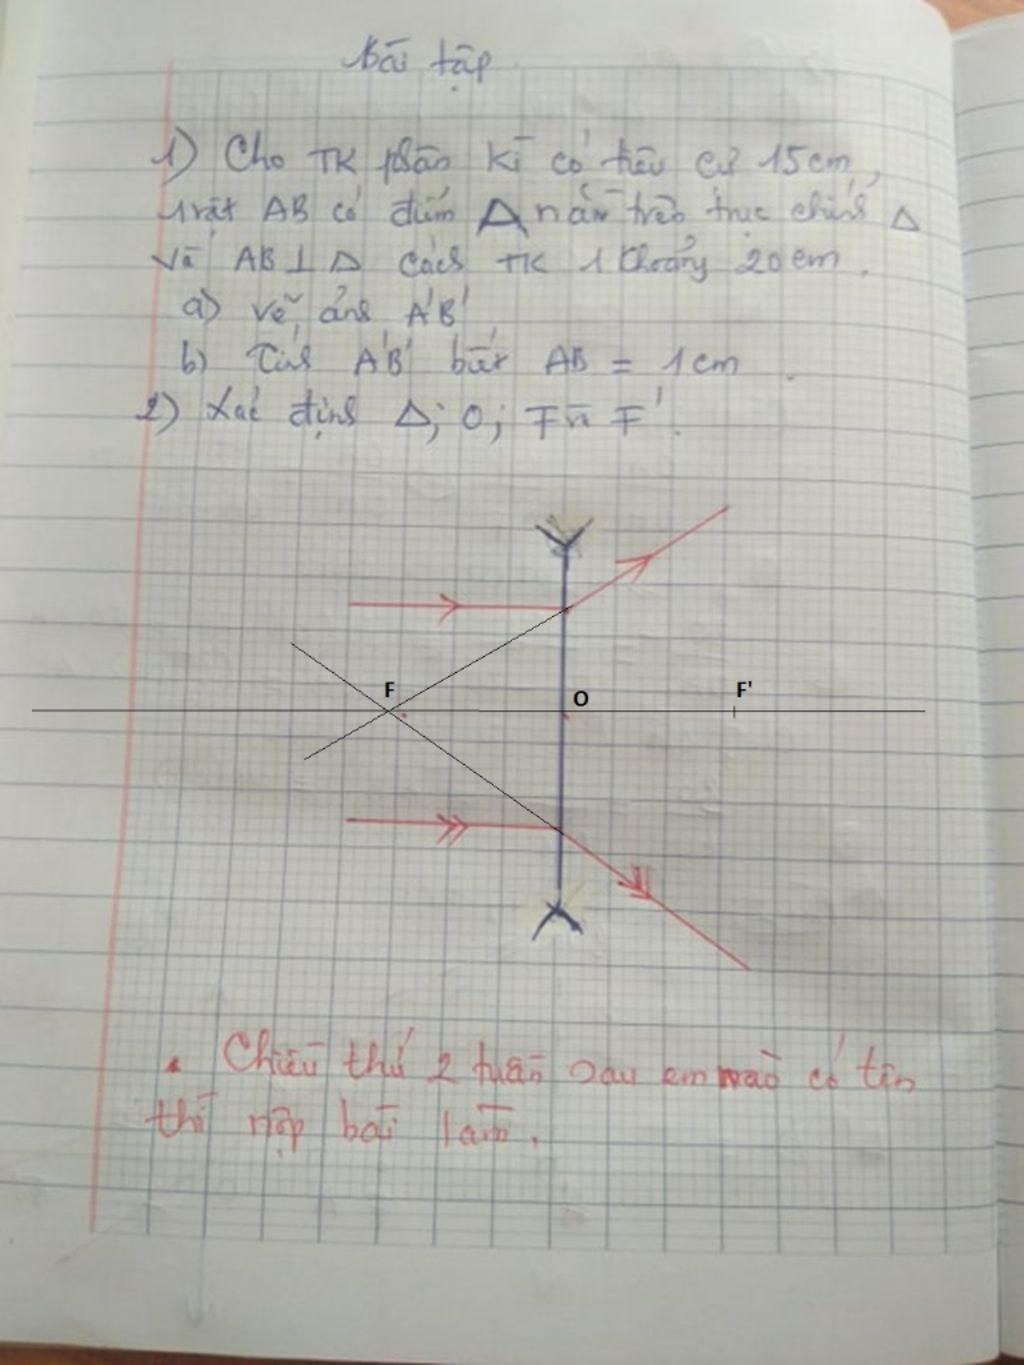 Bài tập
1) Cho TK phân kì có tiêu cự 15cm,
vật AB có điểm A nằm trên trục chính Δ
và AB⊥Δ cách TK 1 khoảng 20cm.
a) vẽ ảnh A'B'
b) Tính A'B' biết AB = 1cm.
2) Xác định Δ; O; F và F'.
F O F'
Chiều thứ 2 tuần sau em nào có tên
thì nộp bài làm.